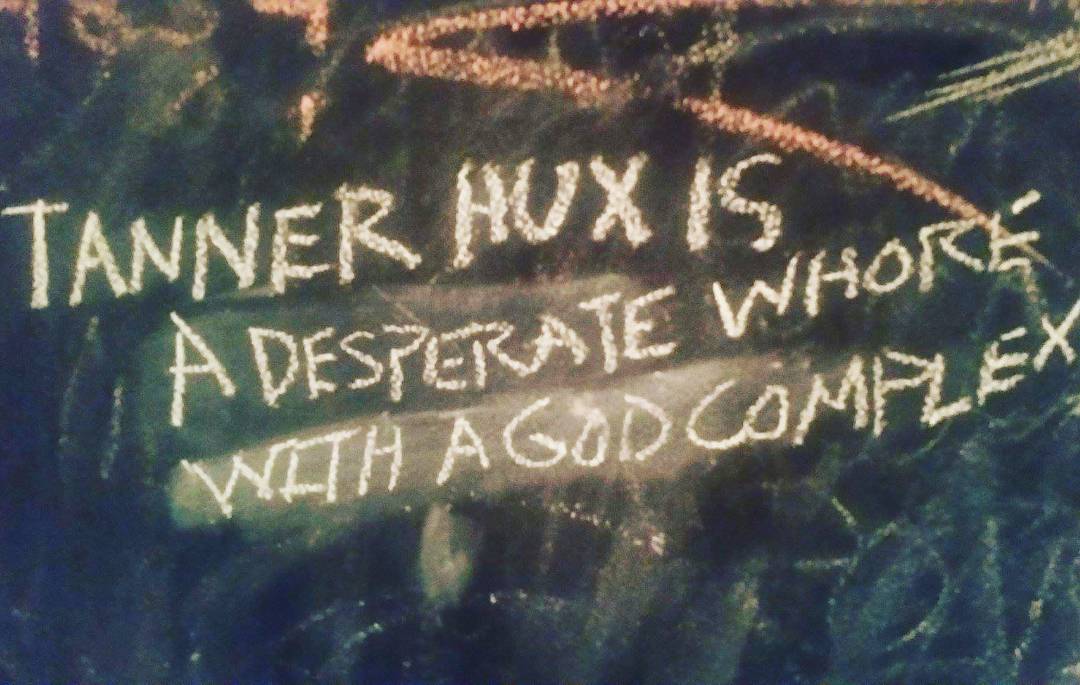 TANNER HUX IS
A DESPERATE WHORÉ
WITH A GOD COMPLEX